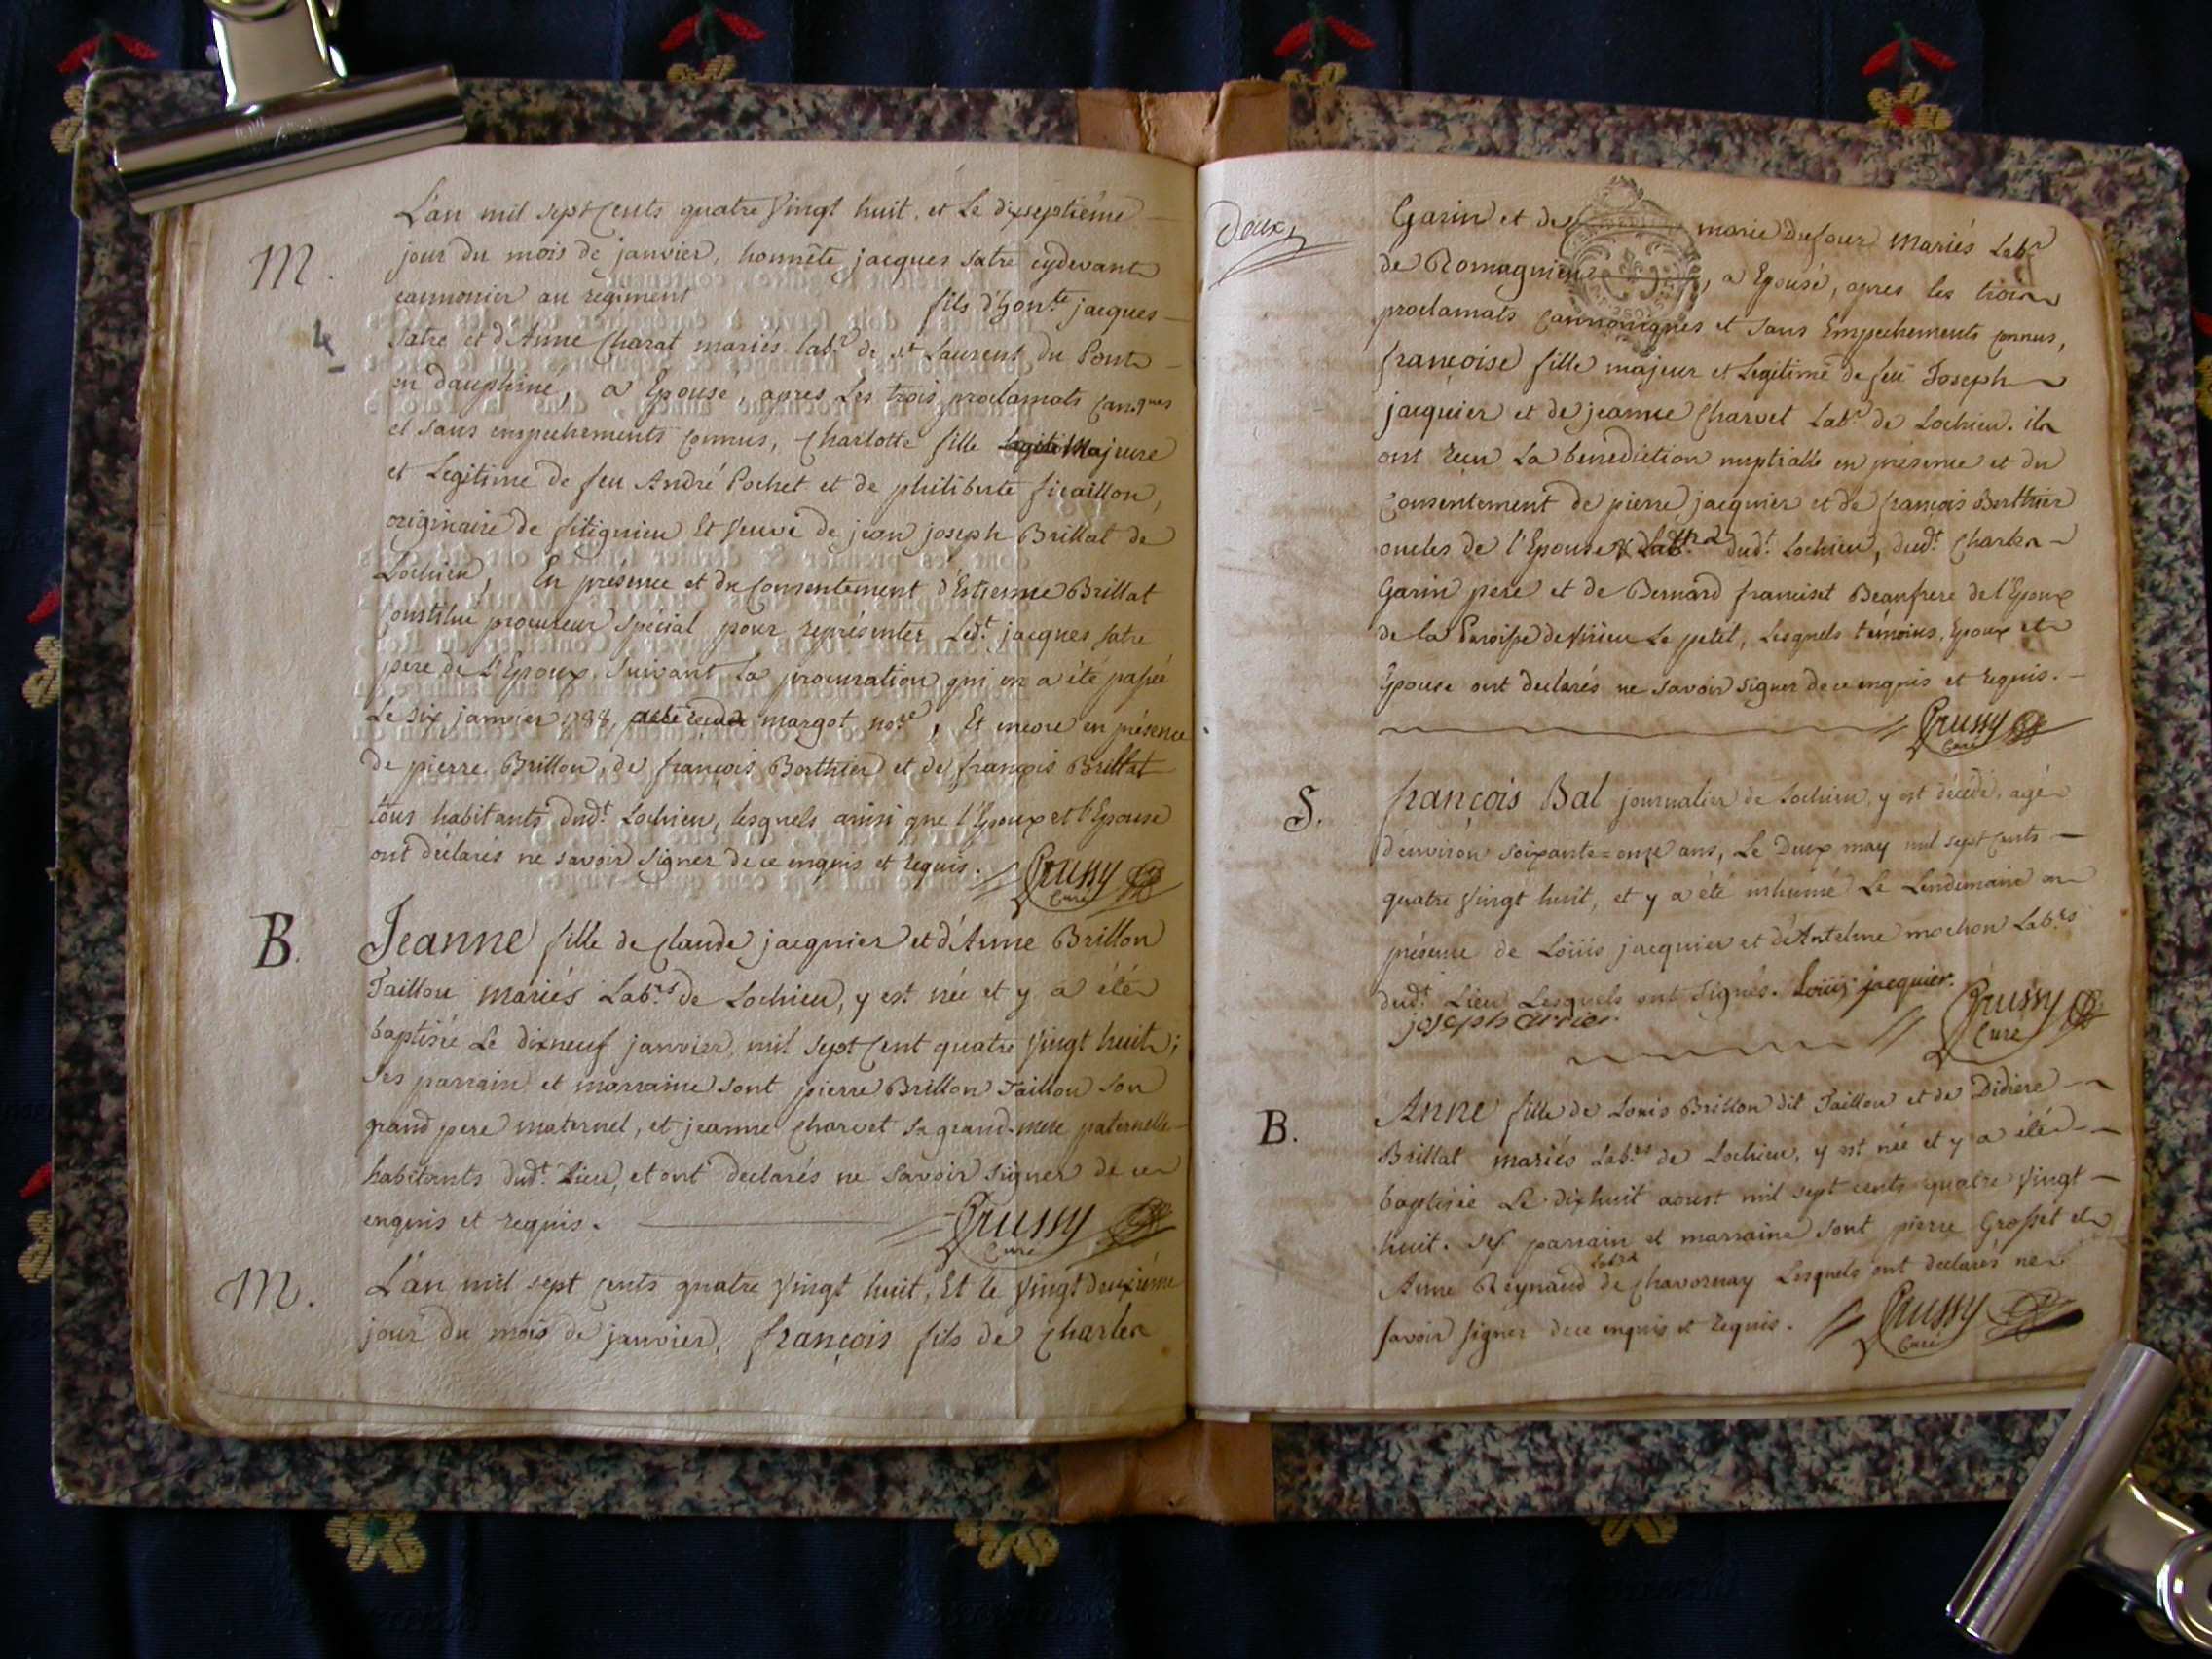 M.
L'an mil sept cents quatre vingt huit, et le dixseptième
jour du mois de janvier, honnête jacques satre cydevant
cannonier au regiment fils d'hon.te jacques
satre et d'Anne Charat mariés lab.rs de st Laurent du Pont
en dauphiné, a Epousé, apres les trois proclamats can.ques
et sans empechements connus, Charlotte fille Majeure
et Legitime de feu André Pochet et de philiberte
originaire de fitignieu Et veuve de jean joseph Brillat de
Lochieu, En présence et du consentement d'Estienne Brillat
constitué procureur spécial pour représenter led.t jacques satre
pere de l'Epoux, suivant la procuration qui en a été passée
Le six janvier 1788, margot no.re, Et encore en présence
de pierre Brillon, de françois Berthier et de françois Brillat
tous habitants dud.t Lochieu, lesquels ainsi que l'Epoux et l'Epouse
ont déclarés ne savoir signer de ce enquis et requis. Crussy
Curé
B.
Jeanne fille de claude jacquier et d'Anne Brillon
Taillou mariés Lab.rs de Lochieu, y est née et y a été
baptisée Le dixneuf janvier mil sept cent quatre vingt huit;
ses parrain et marraine sont pierre Brillon Taillou son
grand pere maternel, et jeanne charvet sa grand-mere paternelle
habitants dud.t Lieu, et ont declarés ne savoir signer de ce
enquis et requis. Crussy
Curé
M.
L'an mil sept cents quatre vingt huit, Et le vingt deuxième
jour du mois de janvier, françois fils de Charles
Deux
Garin et de marie dufour Mariés Lab.rs
de Romagnieu, a Epousé, apres les trois
proclamats cannoniques et sans Empechements connus,
françoise fille majeur et Legitime de feu Joseph
jacquier et de jeanne Charvet Lab.rs de Lochieu. ils
ont reçu La benediction nuptialle en présence et du
consentement de pierre jacquier et de françois Berthier
oncles de l'Epouse Lab.rs dud.t Lochieu, dud.t Charles
Garin pere et de Bernard franciset Beaufrere de l'Epoux
de la Paroisse de Virieu Le petit, Lesquels témoins, Epoux et
Epouse ont declarés ne savoir signer de ce enquis et requis.
Crussy
Curé
S.
françois Bal journalier de Lochieu, y est décédé, agé
d'environ soixante=onze ans, Le Deux may mil sept cents
quatre vingt huit, et y a été inhumé Le Lendemain en
présence de Loüis jacquier et d'Antelme mochon Lab.rs
dud.t Lieu Lesquels ont signés. Loüis jacquier.
joseph carrier. Crussy
Curé
B.
Anne fille de Louis Brillon dit Taillou et de Didiere
Brillat mariés Lab.rs de Lochieu, y est née et y a été
baptisée Le dixhuit aoust mil sept cents quatre vingt
huit. ses parrain et marraine sont pierre Grosset et
Anne Reynaud Lab.rs de Chavornay Lesquels ont declarés ne
savoir signer de ce enquis et requis. Crussy
Curé